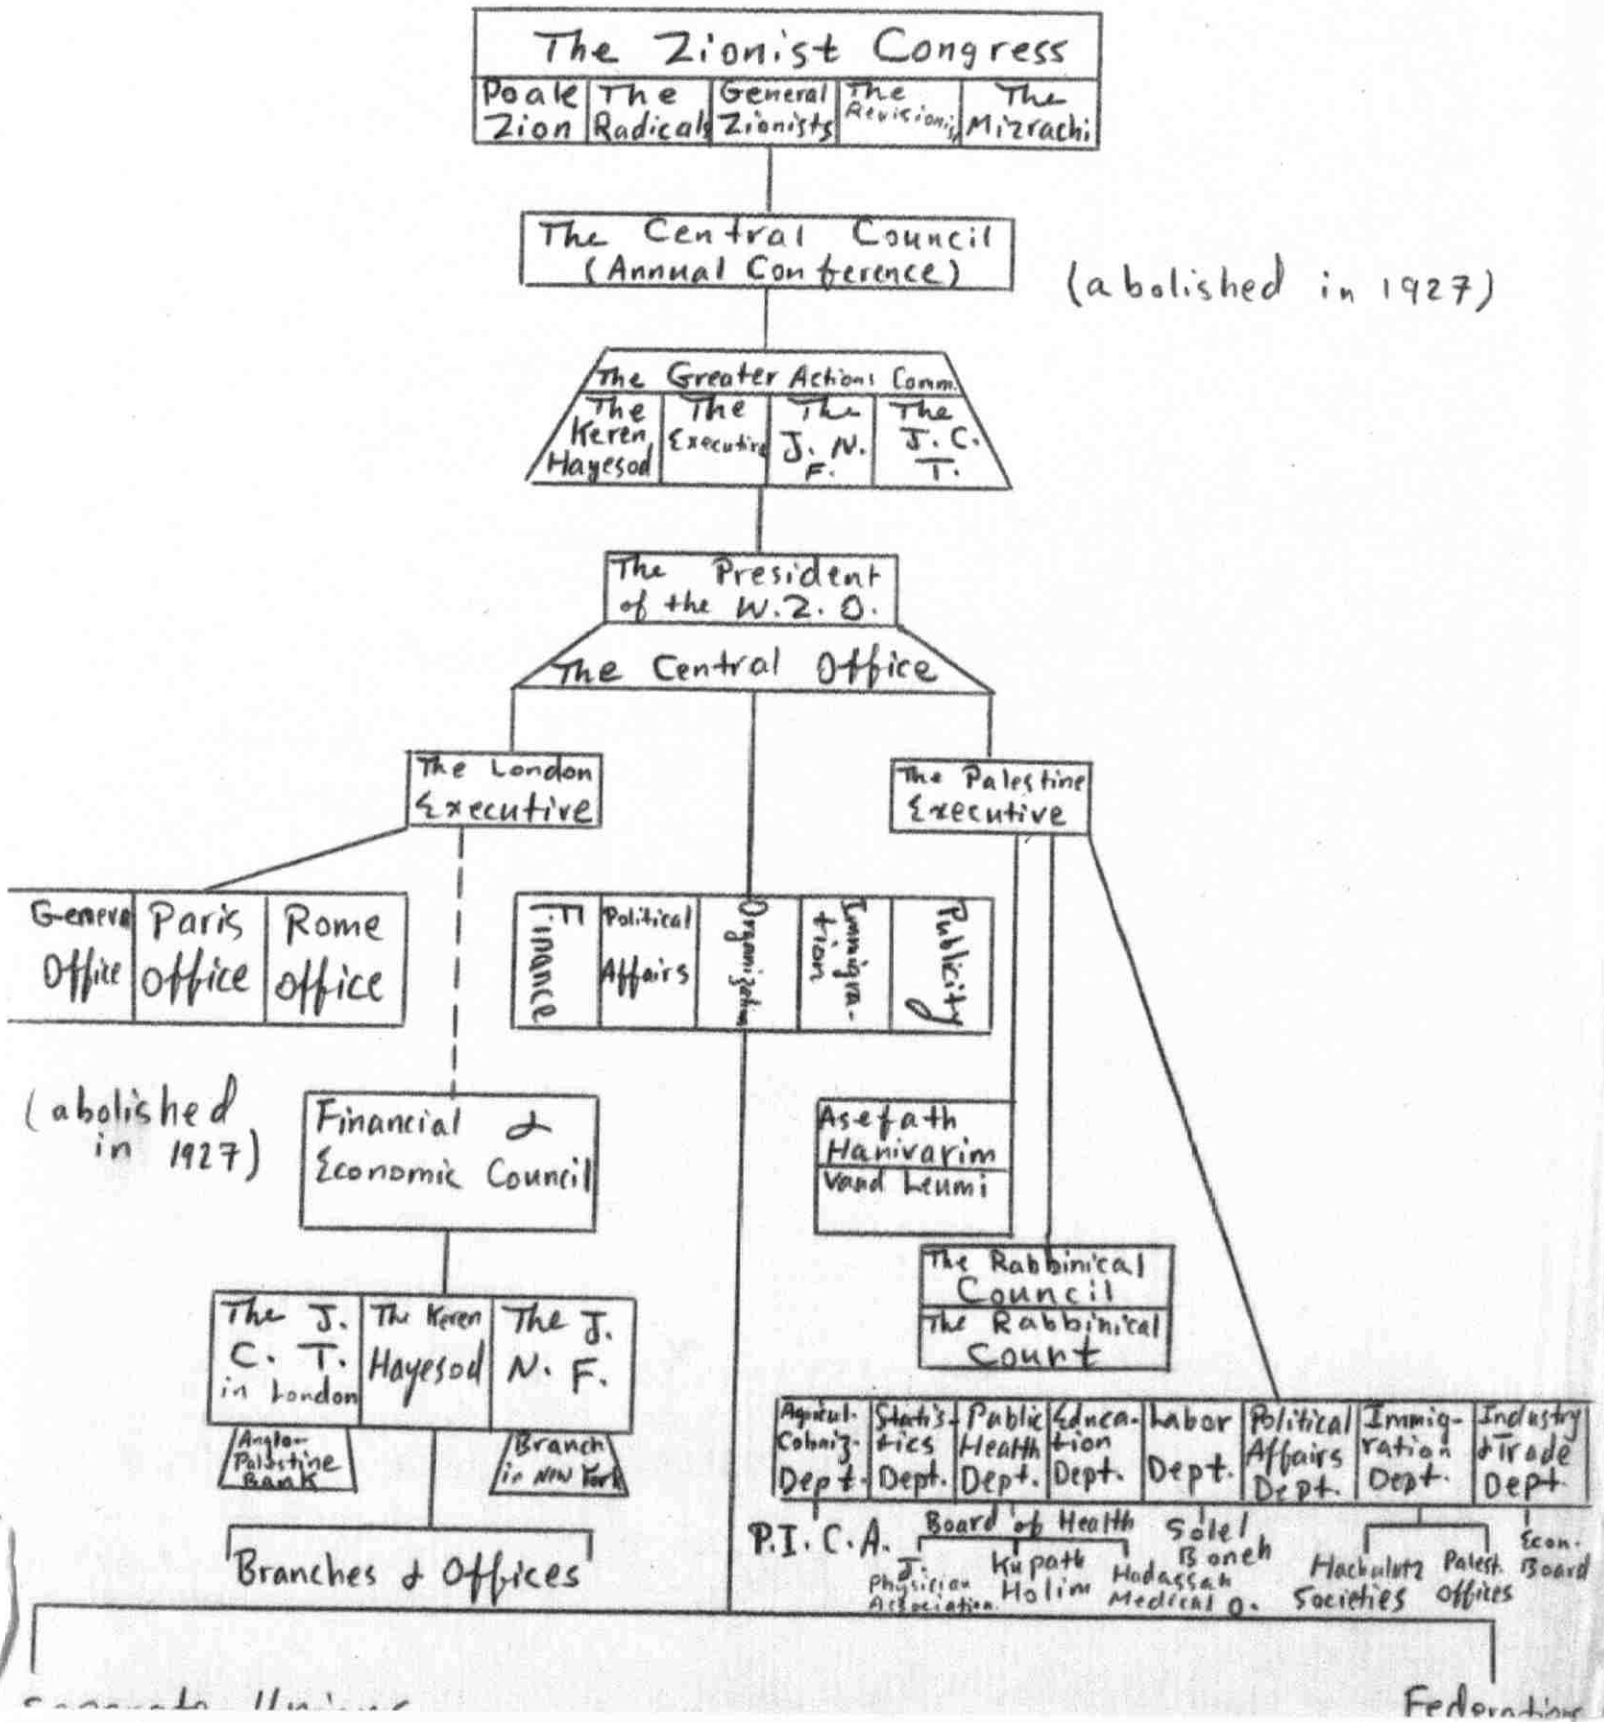 The Zionist Congress
Poale Zion
The Radicals
General Zionists
The Revisionis
The Mizrachi
The Central Council
(Annual Conference)
(abolished in 1927)
The Greater Actions Comm.
The Keren Hayesod
The Executive
The J. N. F.
The J. C. T.
The President
of the W.Z.O.
The Central Office
The London
Executive
The Palestine
Executive
Geneva Office
Paris Office
Rome Office
Finance
Political Affairs
Organization
Immigra-
tion
Publicity
(abolished
in 1927)
Financial &
Economic Council
Asefath
Hanivarim
Vaad Leumi
The Rabbinical
Council
The Rabbinical
Court
The J.
C. T.
in London
The Keren
Hayesod
The J.
N. F.
Anglo-
Palestine
Bank
Branch
in New York
Branches & Offices
Agricul.
Coloniz.
Dept.
Statis-
tics
Dept.
Public
Health
Dept.
Educa-
tion
Dept.
Labor
Dept.
Political
Affairs
Dept.
Immig-
ration
Dept.
Industry
& Trade
Dept.
P.I.C.A.
Board of Health
J.
Physician
Association
Kupath
Holim
Hadassah
Medical O.
Solel
Boneh
Hachalutz
Societies
Palest.
Offices
Econ.
Board
Federations